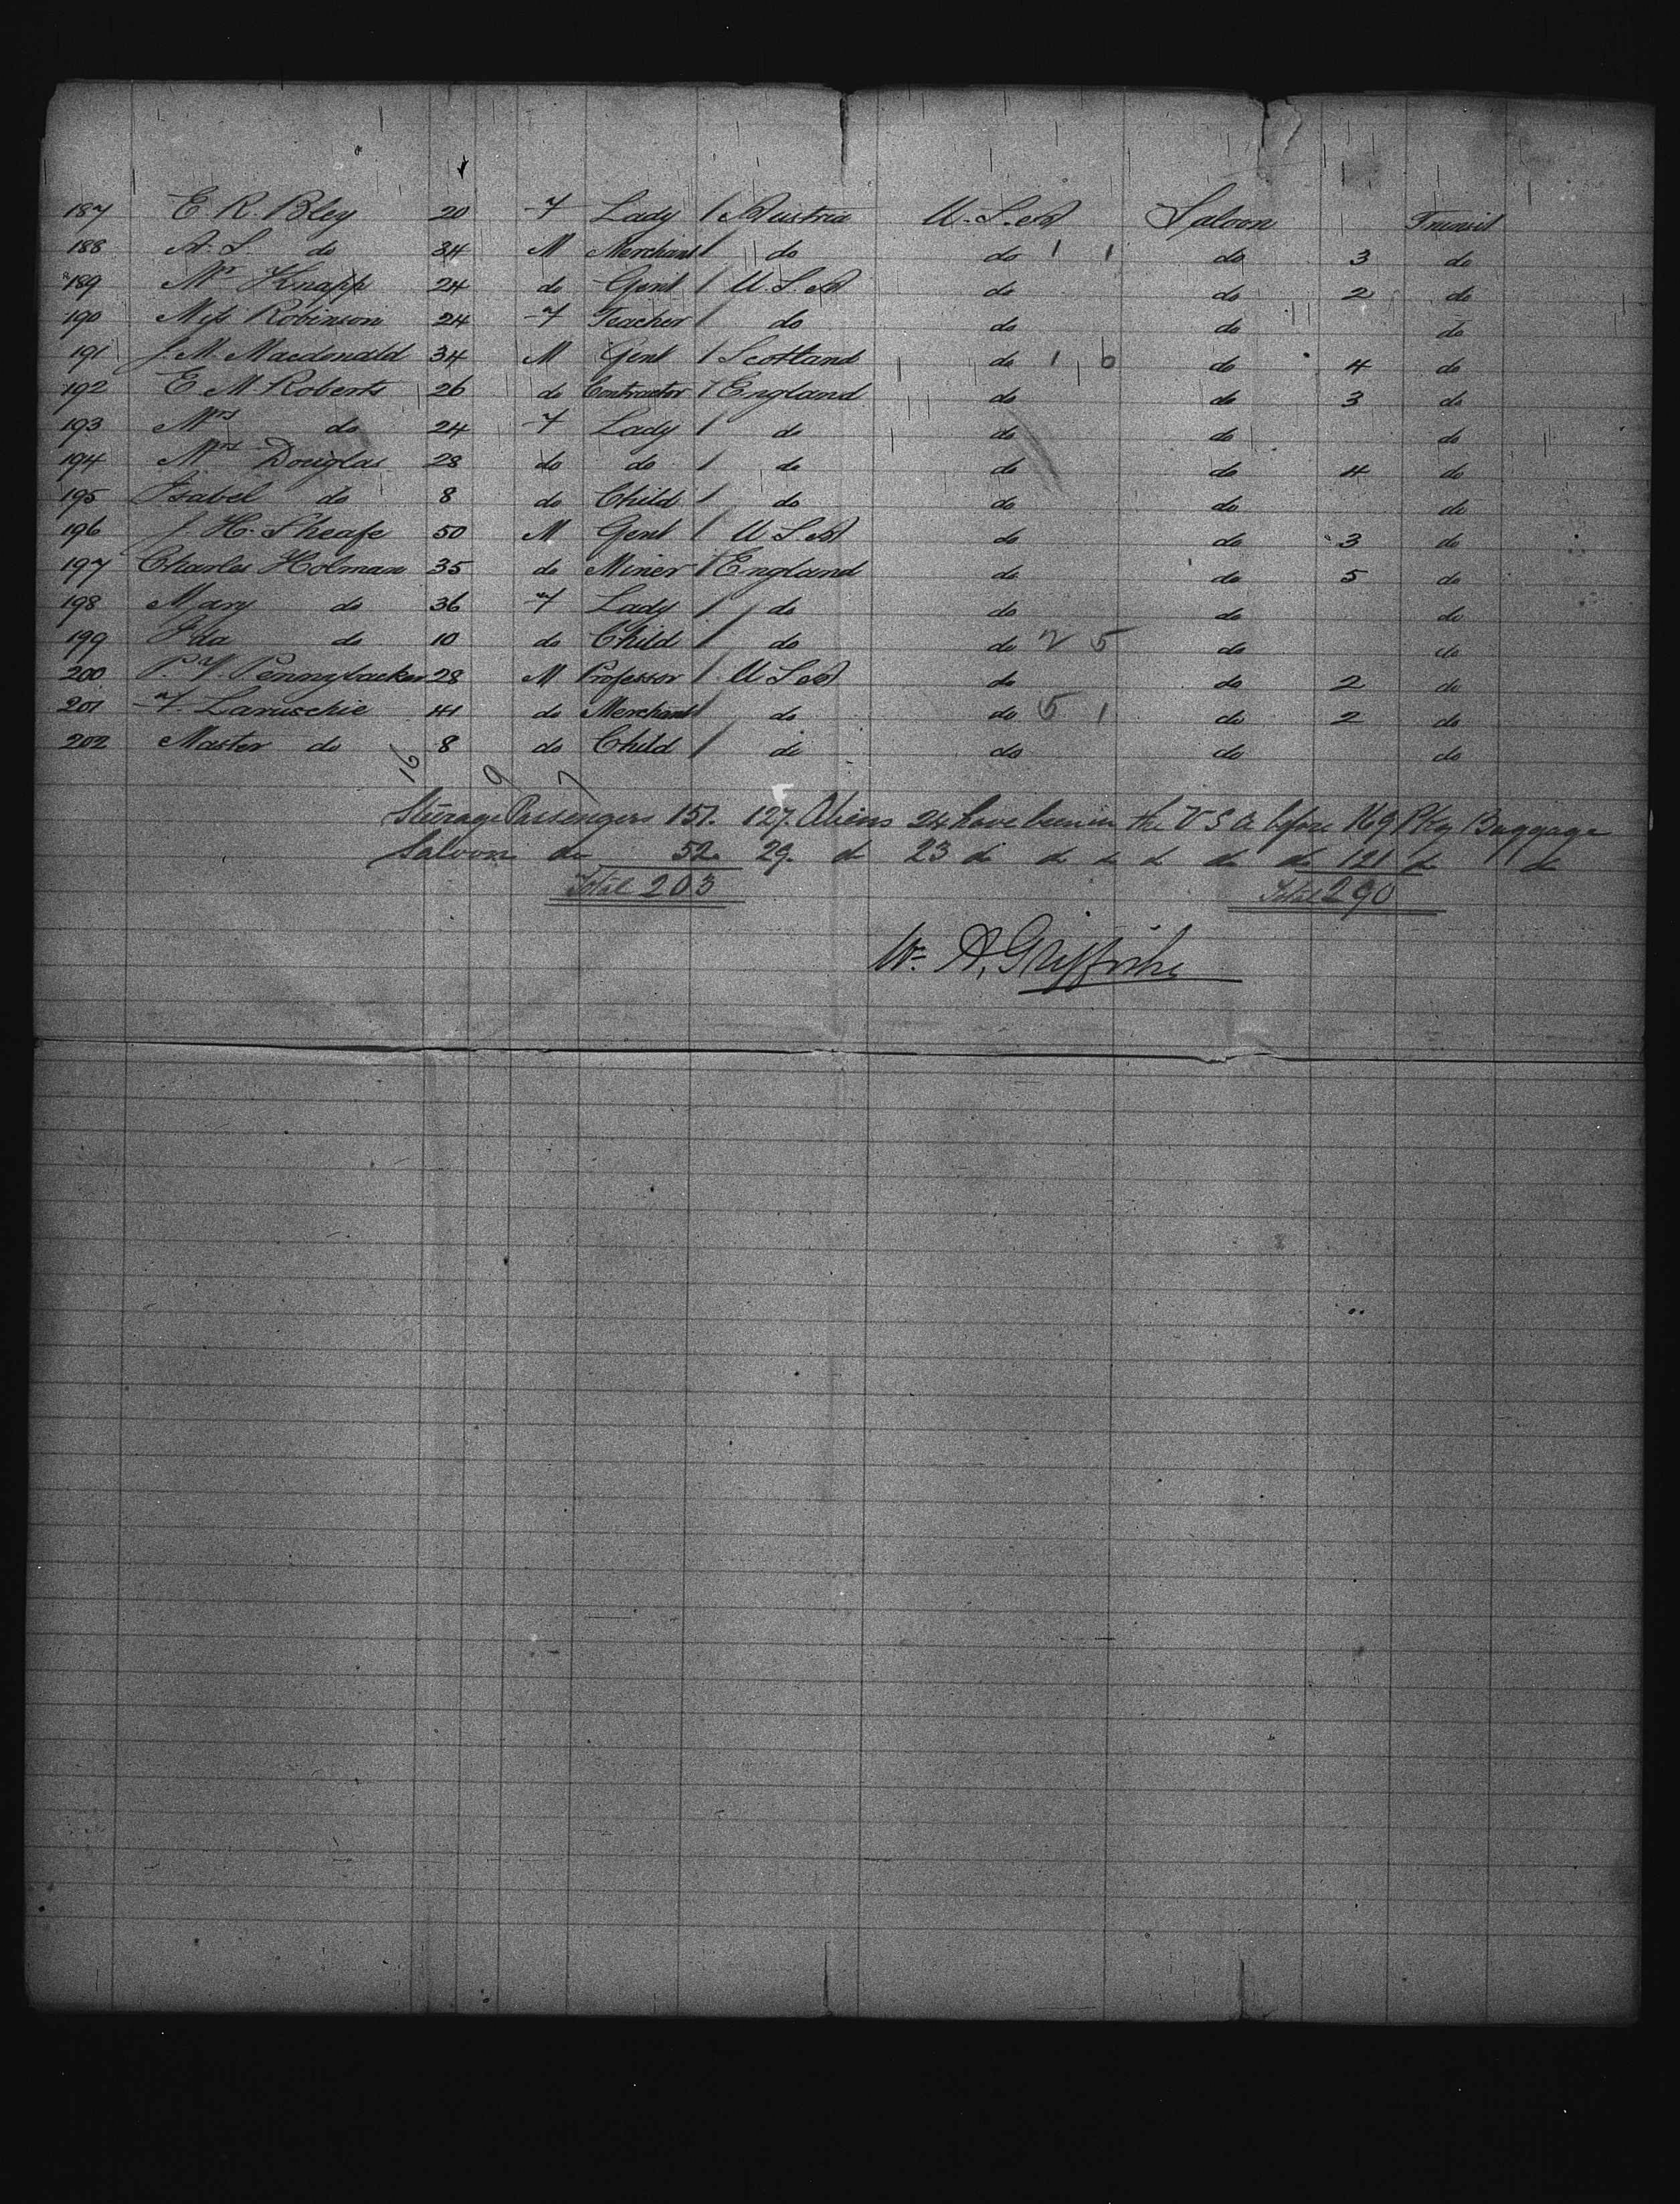 187 E. R. Bley 20 F Lady / Austria U.S.A Saloon Transit
188 A. S. do 34 M Merchant / do do 1 1 do 3 do
189 Mr Knapp 24 do Gent / U.S.A do do 2 do
190 Miss Robinson 24 F Teacher / do do do do
191 J. M. Macdonald 34 M Gent / Scotland do 1 6 do 4 do
192 E M Roberts 26 do Contractor / England do do 3 do
193 Mrs do 24 F Lady / do do do do
194 Mrs Douglas 28 do do / do do do 4 do
195 Isabel do 8 do Child / do do do do
196 J. H. Sheafe 50 M Gent / U S A do do 3 do
197 Charles Holman 35 do Miner / England do do 5 do
198 Mary do 36 F Lady / do do do do
199 Ida do 10 do Child / do do 2 5 do do
200 P. V. Pennybacker 28 M Professor / U S A do do 2 do
201 F. Laruschie 41 do Merchant / do do 5 1 do 2 do
202 Master do 8 do Child / do do do do
16 9 7
Steerage Passengers 151. 127. Aliens 24 have been in the U S A before 169 Pkg Baggage
Saloon do 52 29. do 23 do do do do do do 121 do do
Total 203 Total 290
W. A. Griffiths